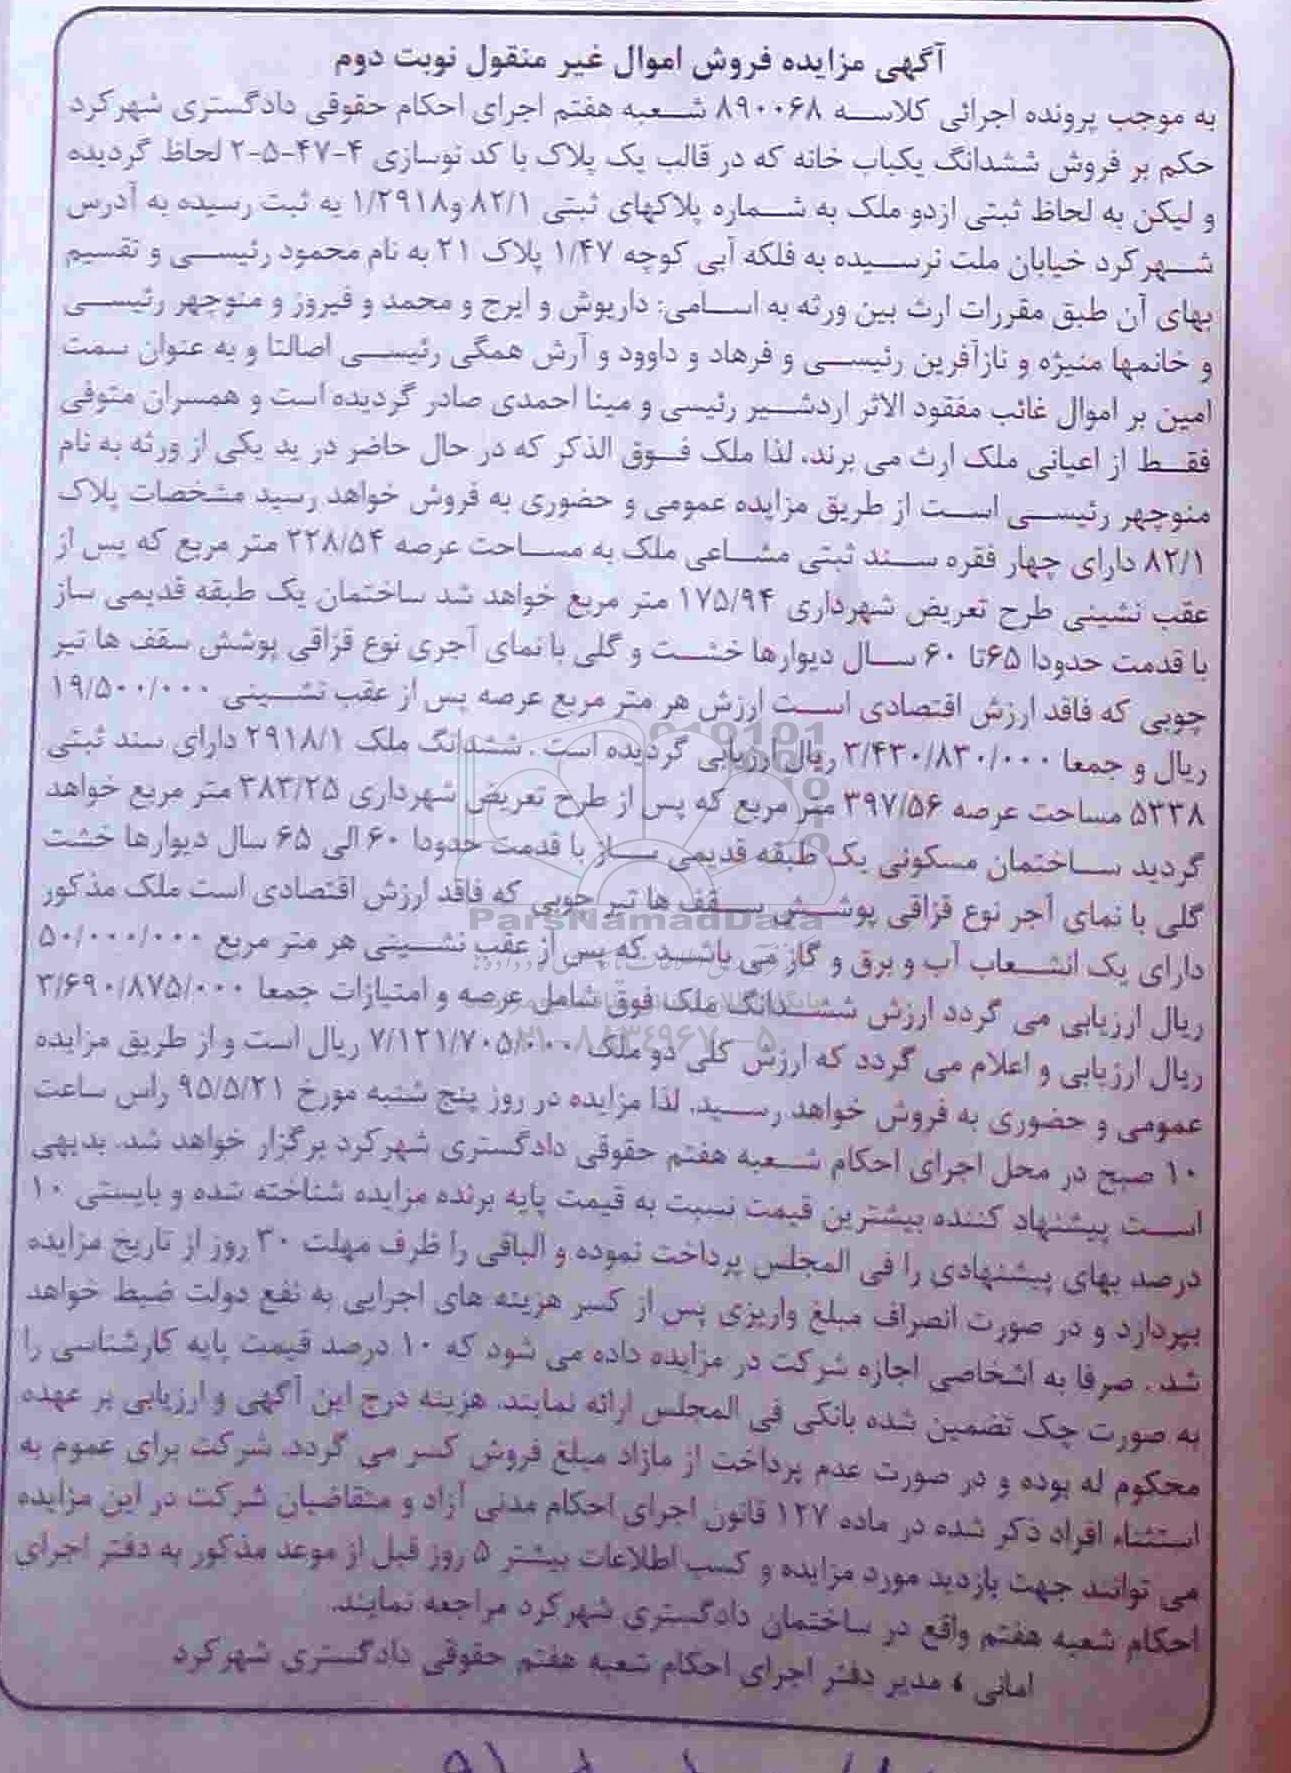 آگهی مزایده فروش اموال غیر منقول نوبت دوم
به موجب پرونده اجرائی کلاسه ۸۹۰۰۶۸ شعبه هفتم اجرای احکام حقوقی دادگستری شهرکرد
حکم بر فروش ششدانگ یکباب خانه که در قالب یک پلاک با کد نوسازی ۴-۴۷-۵-۲ لحاظ گردیده
و لیکن به لحاظ ثبتی ازدو ملک به شماره پلاکهای ثبتی ۸۲/۱ و۱/۲۹۱۸ به ثبت رسیده به آدرس
شهرکرد خیابان ملت نرسیده به فلکه آبی کوچه ۱/۴۷ پلاک ۲۱ به نام محمود رئیسی و تقسیم
بهای آن طبق مقررات ارث بین ورثه به اسامی: داریوش و ایرج و محمد و فیروز و منوچهر رئیسی
و خانمها منیژه و نازآفرین رئیسی و فرهاد و داوود و آرش همگی رئیسی اصالتا و به عنوان سمت
امین بر اموال غائب مفقود الاثر اردشیر رئیسی و مینا احمدی صادر گردیده است و همسران متوفی
فقط از اعیانی ملک ارث می برند. لذا ملک فوق الذکر که در حال حاضر در ید یکی از ورثه به نام
منوچهر رئیسی است از طریق مزایده عمومی و حضوری به فروش خواهد رسید مشخصات پلاک
۸۲/۱ دارای چهار فقره سند ثبتی مشاعی ملک به مساحت عرصه ۲۲۸/۵۴ متر مربع که پس از
عقب نشینی طرح تعریض شهرداری ۱۷۵/۹۴ متر مربع خواهد شد ساختمان یک طبقه قدیمی ساز
با قدمت حدودا ۶۵تا ۶۰ سال دیوارها خشت و گلی با نمای آجری نوع قزاقی پوشش سقف ها تیر
چوبی که فاقد ارزش اقتصادی است ارزش هر متر مربع عرصه پس از عقب نشینی ۱۹/۵۰۰/۰۰۰
ریال و جمعا ۳/۴۳۰/۸۳۰/۰۰۰ ریال ارزیابی گردیده است . ششدانگ ملک ۲۹۱۸/۱ دارای سند ثبتی
۵۳۳۸ مساحت عرصه ۳۹۷/۵۶ متر مربع که پس از طرح تعریض شهرداری ۳۸۳/۲۵ متر مربع خواهد
گردید ساختمان مسکونی یک طبقه قدیمی ساز با قدمت حدودا ۶۰ الی ۶۵ سال دیوارها خشت
گلی با نمای آجر نوع قزاقی پوشش سقف ها تیر چوبی که فاقد ارزش اقتصادی است ملک مذکور
دارای یک انشعاب آب و برق و گاز می باشد که پس از عقب نشینی هر متر مربع ۵۰/۰۰۰/۰۰۰
ریال ارزیابی می گردد ارزش ششدانگ ملک فوق شامل عرصه و امتیازات جمعا ۳/۶۹۰/۸۷۵/۰۰۰
ریال ارزیابی و اعلام می گردد که ارزش کلی دو ملک ۷/۱۲۱/۷۰۵/۰۰۰ ریال است و از طریق مزایده
عمومی و حضوری به فروش خواهد رسید. لذا مزایده در روز پنج شنبه مورخ ۹۵/۵/۲۱ راس ساعت
۱۰ صبح در محل اجرای احکام شعبه هفتم حقوقی دادگستری شهرکرد برگزار خواهد شد. بدیهی
است پیشنهاد کننده بیشترین قیمت نسبت به قیمت پایه برنده مزایده شناخته شده و بایستی ۱۰
درصد بهای پیشنهادی را فی المجلس پرداخت نموده و الباقی را ظرف مهلت ۳۰ روز از تاریخ مزایده
بپردارد و در صورت انصراف مبلغ واریزی پس از کسر هزینه های اجرایی به نفع دولت ضبط خواهد
شد . صرفا به اشخاصی اجازه شرکت در مزایده داده می شود که ۱۰ درصد قیمت پایه کارشناسی را
به صورت چک تضمین شده بانکی فی المجلس ارائه نمایند. هزینه درج این آگهی و ارزیابی بر عهده
محکوم له بوده و در صورت عدم پرداخت از مازاد مبلغ فروش کسر می گردد. شرکت برای عموم به
استثناء افراد ذکر شده در ماده ۱۲۷ قانون اجرای احکام مدنی آزاد و متقاضیان شرکت در این مزایده
می توانند جهت بازدید مورد مزایده و کسب اطلاعات بیشتر ۵ روز قبل از موعد مذکور به دفتر اجرای
احکام شعبه هفتم واقع در ساختمان دادگستری شهرکرد مراجعه نمایند.
امانی ، مدیر دفتر اجرای احکام شعبه هفتم حقوقی دادگستری شهرکرد
ParsNamadData
۰۲۱-۸۸۳۴۹۶۷۰-۵